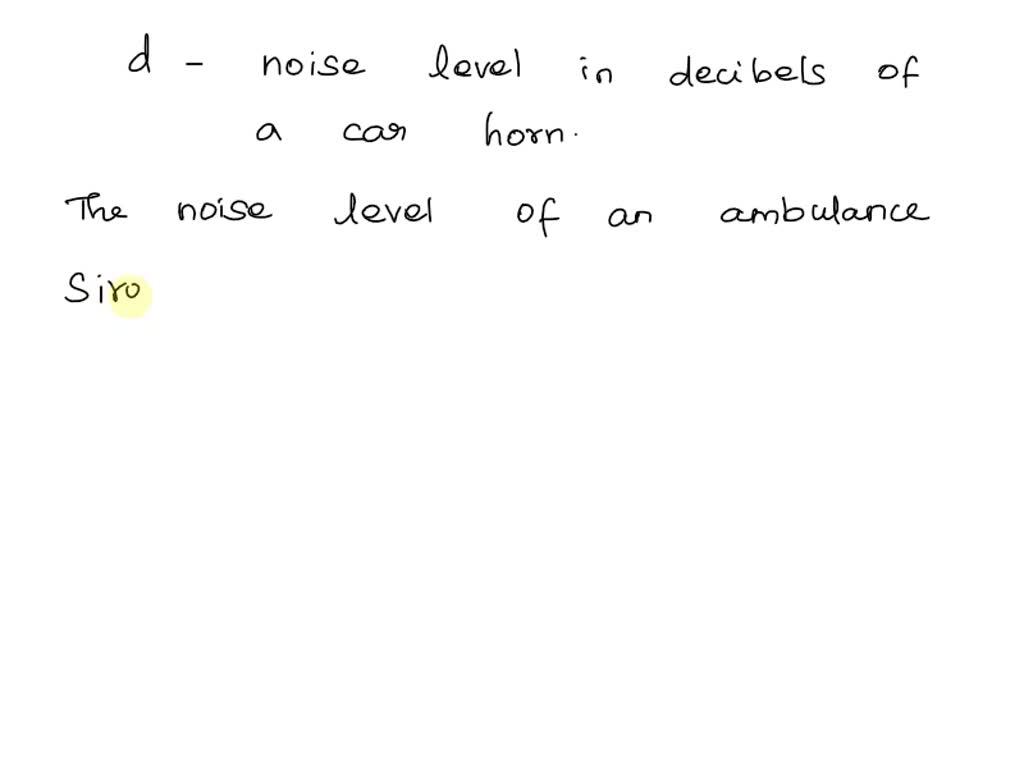 d - noise level in decibels of
a car horn.
The noise level of an ambulance
Siro